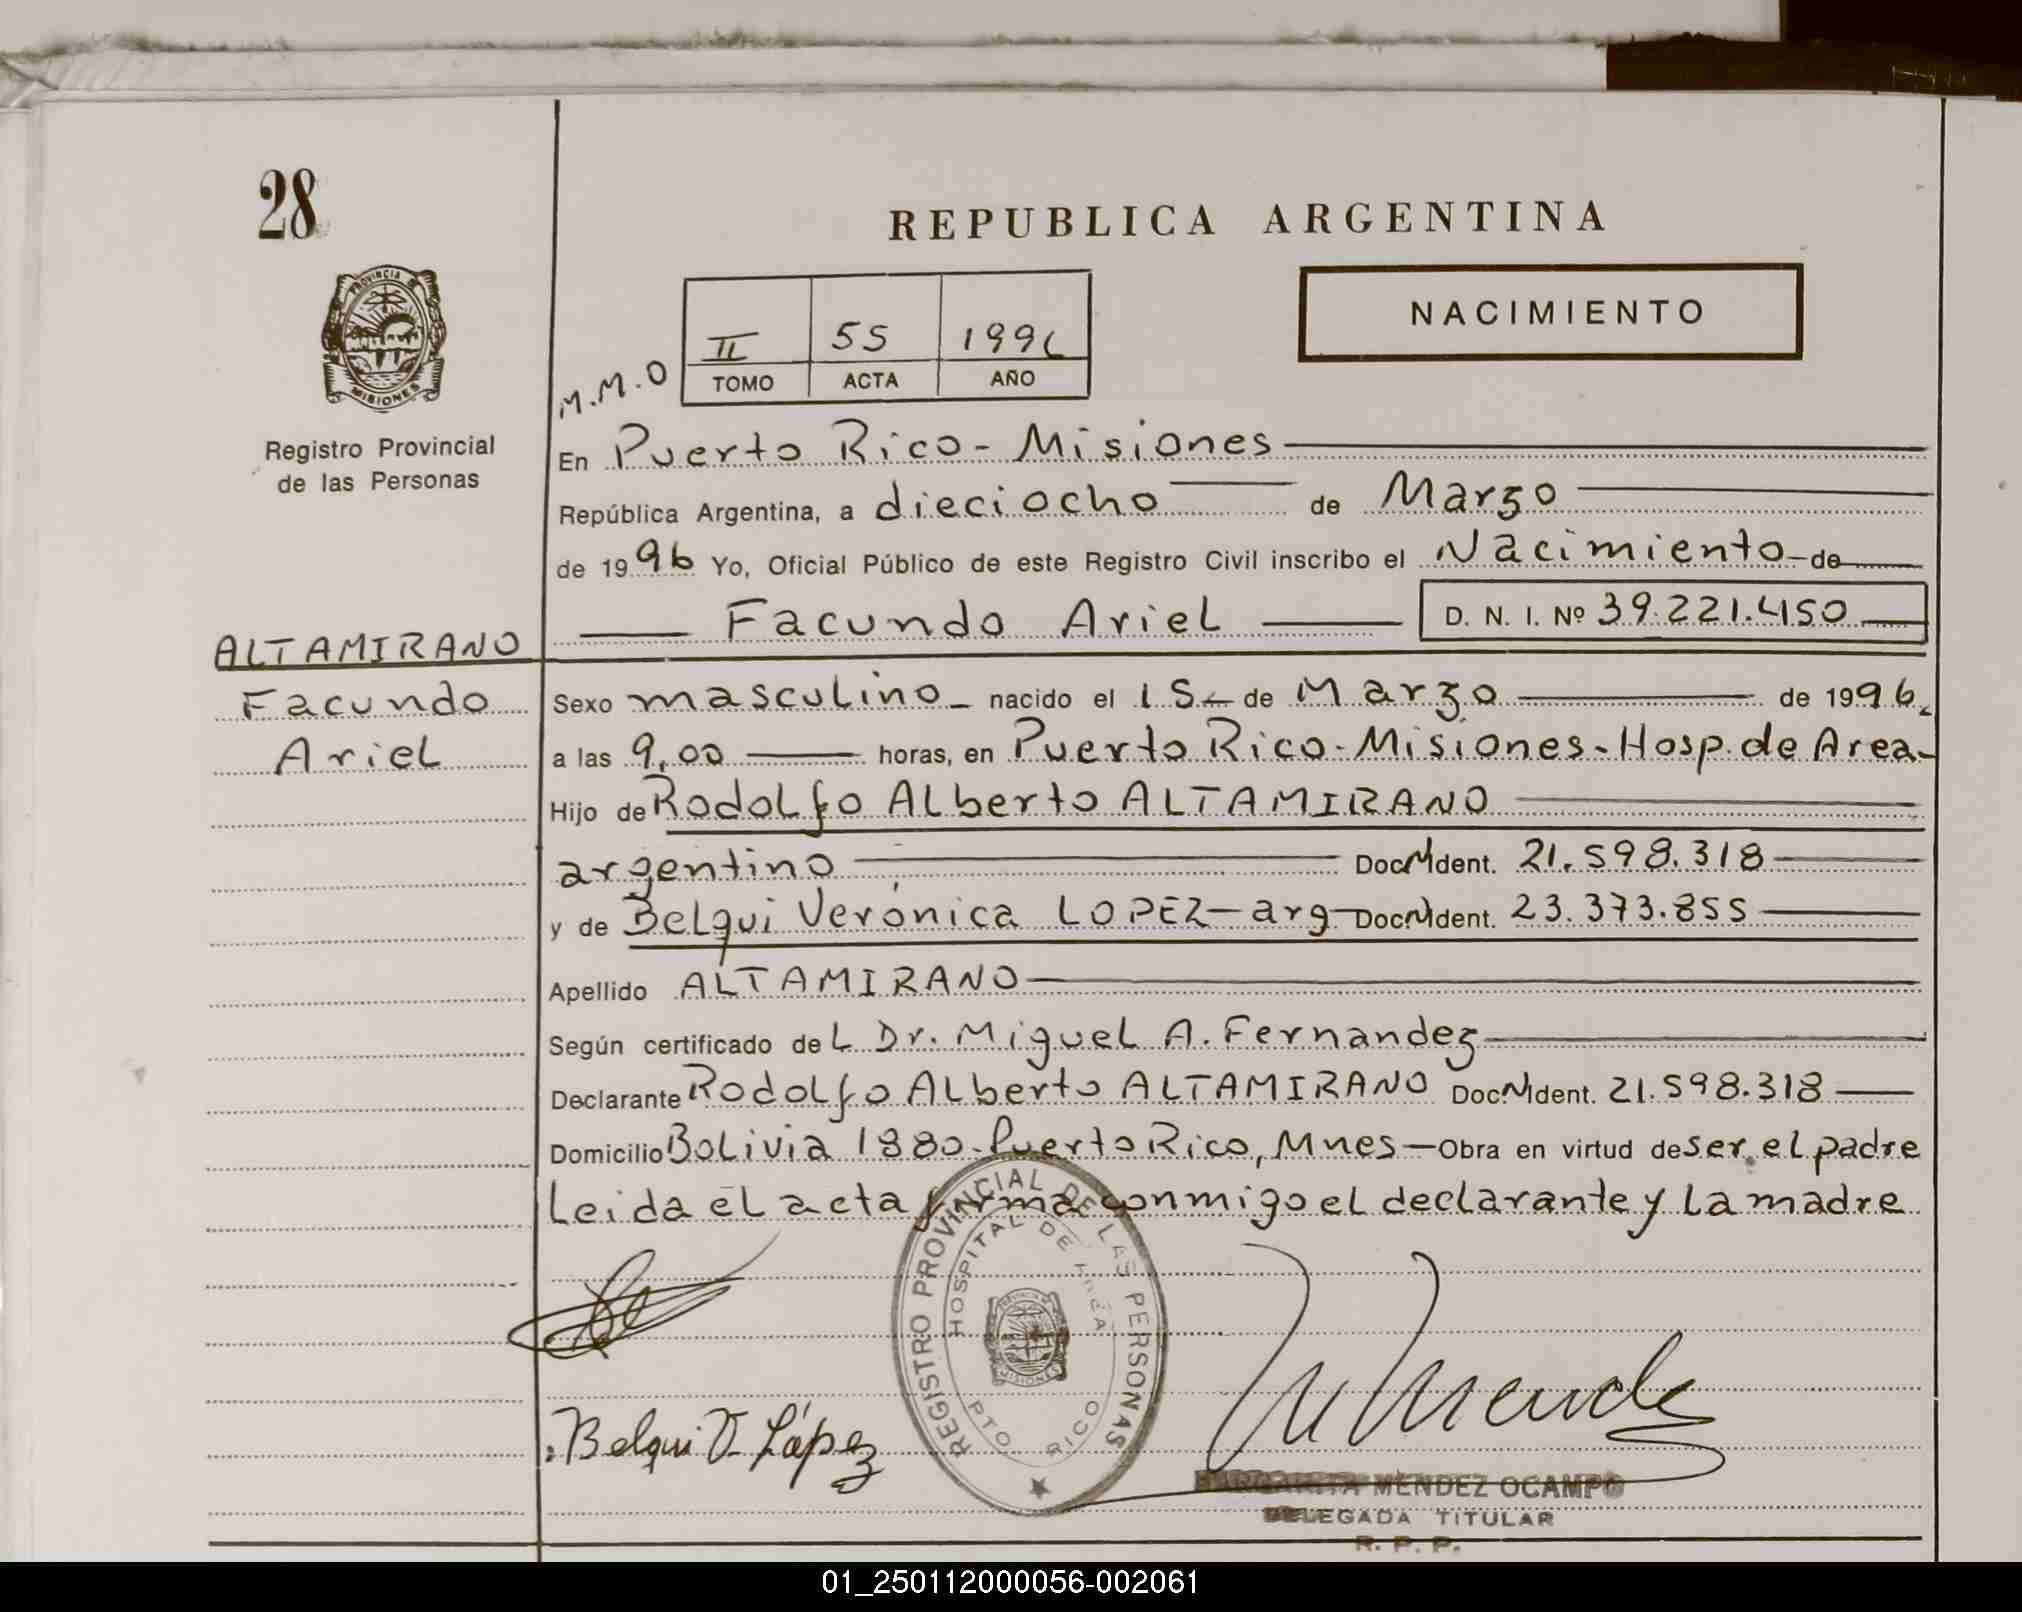 28
REPUBLICA ARGENTINA
NACIMIENTO
PROVINCIA DE
MISIONES
Registro Provincial
de las Personas
II 55 1996
TOMO ACTA AÑO
M.M.O
En Puerto Rico - Misiones
República Argentina, a dieciocho de Marzo
de 1996 Yo, Oficial Público de este Registro Civil inscribo el Nacimiento de
Facundo Ariel D. N. I. Nº 39.221.450
ALTAMIRANO
Facundo
Ariel
Sexo masculino nacido el 15 de Marzo de 1996
a las 9,00 horas, en Puerto Rico - Misiones - Hosp. de Area -
Hijo de Rodolfo Alberto ALTAMIRANO
argentino Doc. Ident. 21.598.318
y de Belqui Verónica LOPEZ - arg Doc. Ident. 23.373.855
Apellido ALTAMIRANO
Según certificado del Dr. Miguel A. Fernandez
Declarante Rodolfo Alberto ALTAMIRANO Doc. Ident. 21.598.318
Domicilio Bolivia 1880 - Puerto Rico, Mnes - Obra en virtud de ser el padre
Leida el acta firma conmigo el declarante y la madre
REGISTRO PROVINCIAL DE LAS PERSONAS
HOSPITAL DE AREA
PTO RICO
Belqui V. López
MARGARITA MENDEZ OCAMPO
DELEGADA TITULAR
R. P. P.
01_250112000056-002061